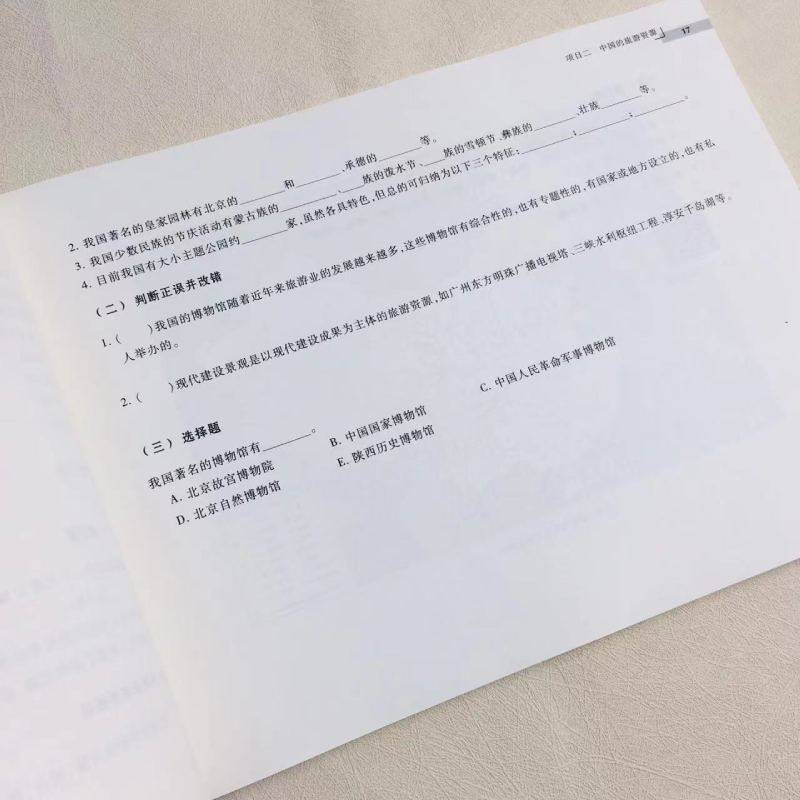 项目二 中国的旅游资源 17
2. 我国著名的皇家园林有北京的________和________、承德的________等。
3. 我国少数民族的节庆活动有蒙古族的________、____族的泼水节、____族的雪顿节、彝族的________、壮族________等。
4. 目前我国有大小主题公园约________家,虽然各具特色,但总的可归纳为以下三个特征:________;________;________。
(二) 判断正误并改错
1. ( )我国的博物馆随着近年来旅游业的发展越来越多,这些博物馆有综合性的,也有专题性的,有国家或地方设立的,也有私
人举办的。
2. ( )现代建设景观是以现代建设成果为主体的旅游资源,如广州东方明珠广播电视塔、三峡水利枢纽工程、淳安千岛湖等。
(三) 选择题
我国著名的博物馆有________。
A. 北京故宫博物院 B. 中国国家博物馆 C. 中国人民革命军事博物馆
D. 北京自然博物馆 E. 陕西历史博物馆